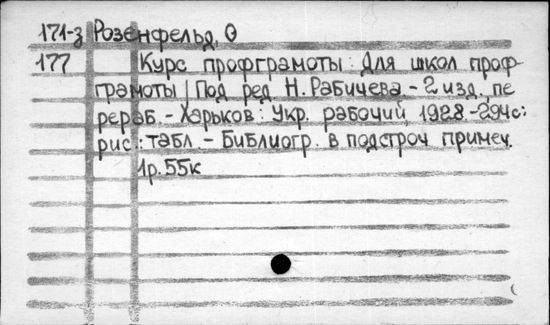 171-з Розенфельд, О
177 Курс профграмоты: Для школ проф-
грамоты / Под ред Н. Рабичева - 2 изд. пе
рераб. - Харьков: Укр. рабочий, 1928. - 294с:
рис.: табл. - Библиогр. в подстроч примеч.
1р. 55к